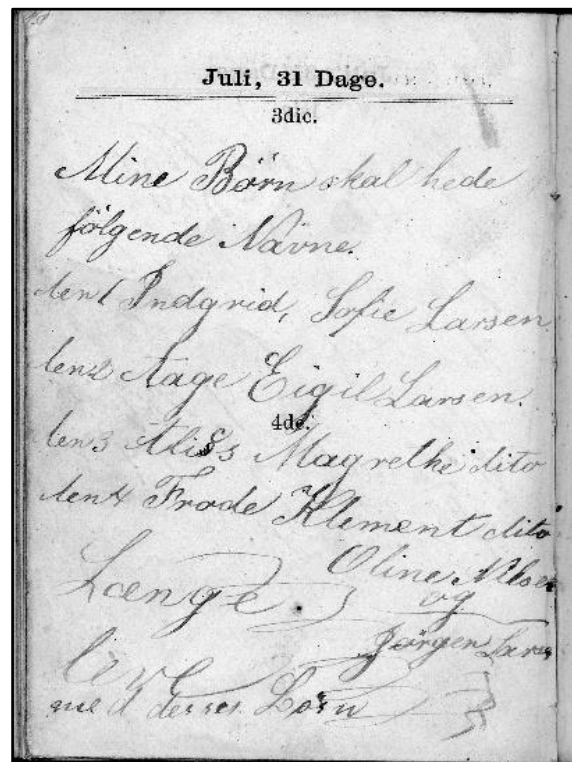 Juli, 31 Dage.
3die.
Mine Børn skal hede
følgende Navne.
den 1 Indgrid, Sofie Larsen
den 2 Aage Eigil Larsen.
4de.
den 3 Aliss Magrethe dito
den 4 Frode Klement dito
Oline Nilsen
Længe og
Jørgen Larsen
leve
med deres Børn